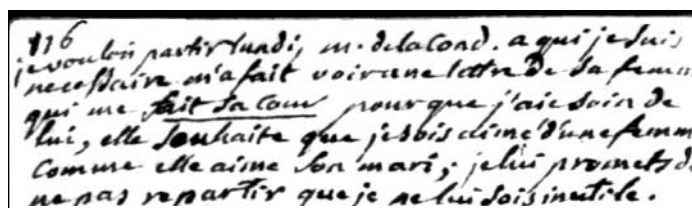 116
je voulois partir lundi, m. de la Cond. a qui je suis
necessaire m'a fait voir une lettre de sa femm
qui me fait sa cour pour que j'aie soin de
lui, elle souhaite que je sois aimé d'une femm
comme elle aime son mari; je lui promets de
ne pas repartir que je ne lui sois inutile.